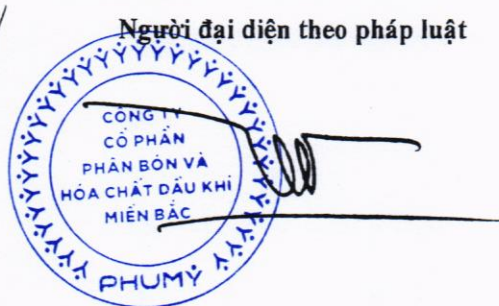 Người đại diện theo pháp luật
CÔNG TY
CỔ PHẦN
PHÂN BÓN VÀ
HÓA CHẤT DẦU KHÍ
MIỀN BẮC
PHUMỸ